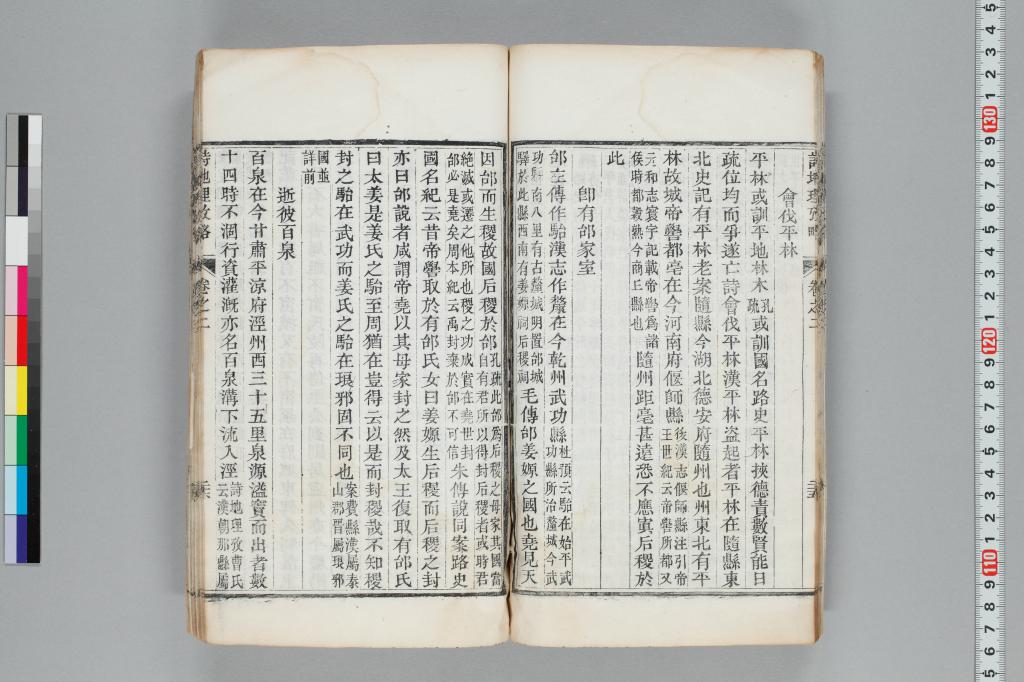 會伐平林
平林或訓平地林木孔疏或訓國名路史平林挾德責數賢能日
疏位均而爭遂亡詩會伐平林漢平林盗起者平林在隨縣東
北史記有平林老案隨縣今湖北德安府隨州也州東北有平
林故城帝嚳都亳在今河南府偃師縣後漢志偃師縣注引帝王世紀云帝嚳所都又
元和志寰宇記載帝嚳爲諸侯時都穀熟今商丘縣也隨州距亳甚遠恐不應寘后稷於
此
卽有邰家室
邰左傳作駘漢志作斄在今乾州武功縣杜預云駘在始平武功縣所治斄城今武
功縣南八里有古斄城明置邰城驛於此縣西南有姜嫄祠后稷祠毛傳邰姜嫄之國也堯見天
因邰而生稷故國后稷於邰孔疏此邰爲后稷之母家其國當自有君所以得封后稷者或時君
絶滅或遷之他所也稷之功成實在堯世封邰必是堯矣周本紀云禹封棄於邰不可信朱傳說同案路史
國名紀云昔帝嚳取於有邰氏女曰姜嫄生后稷而后稷之封
亦曰邰說者咸謂帝堯以其母家封之然及太王復取有邰氏
曰太姜是姜氏之駘至周猶在豈得云以是而封稷哉不知稷
封之駘在武功而姜氏之駘在琅邪固不同也案費縣漢屬泰山郡晉屬琅邪
國並詳前
逝彼百泉
百泉在今甘肅平涼府涇州西三十五里泉源溢竇而出者數
十四時不涸行資灌溉亦名百泉溝下流入涇詩地理攷曹氏云漢朝那縣屬
詩地理攷略 卷之二